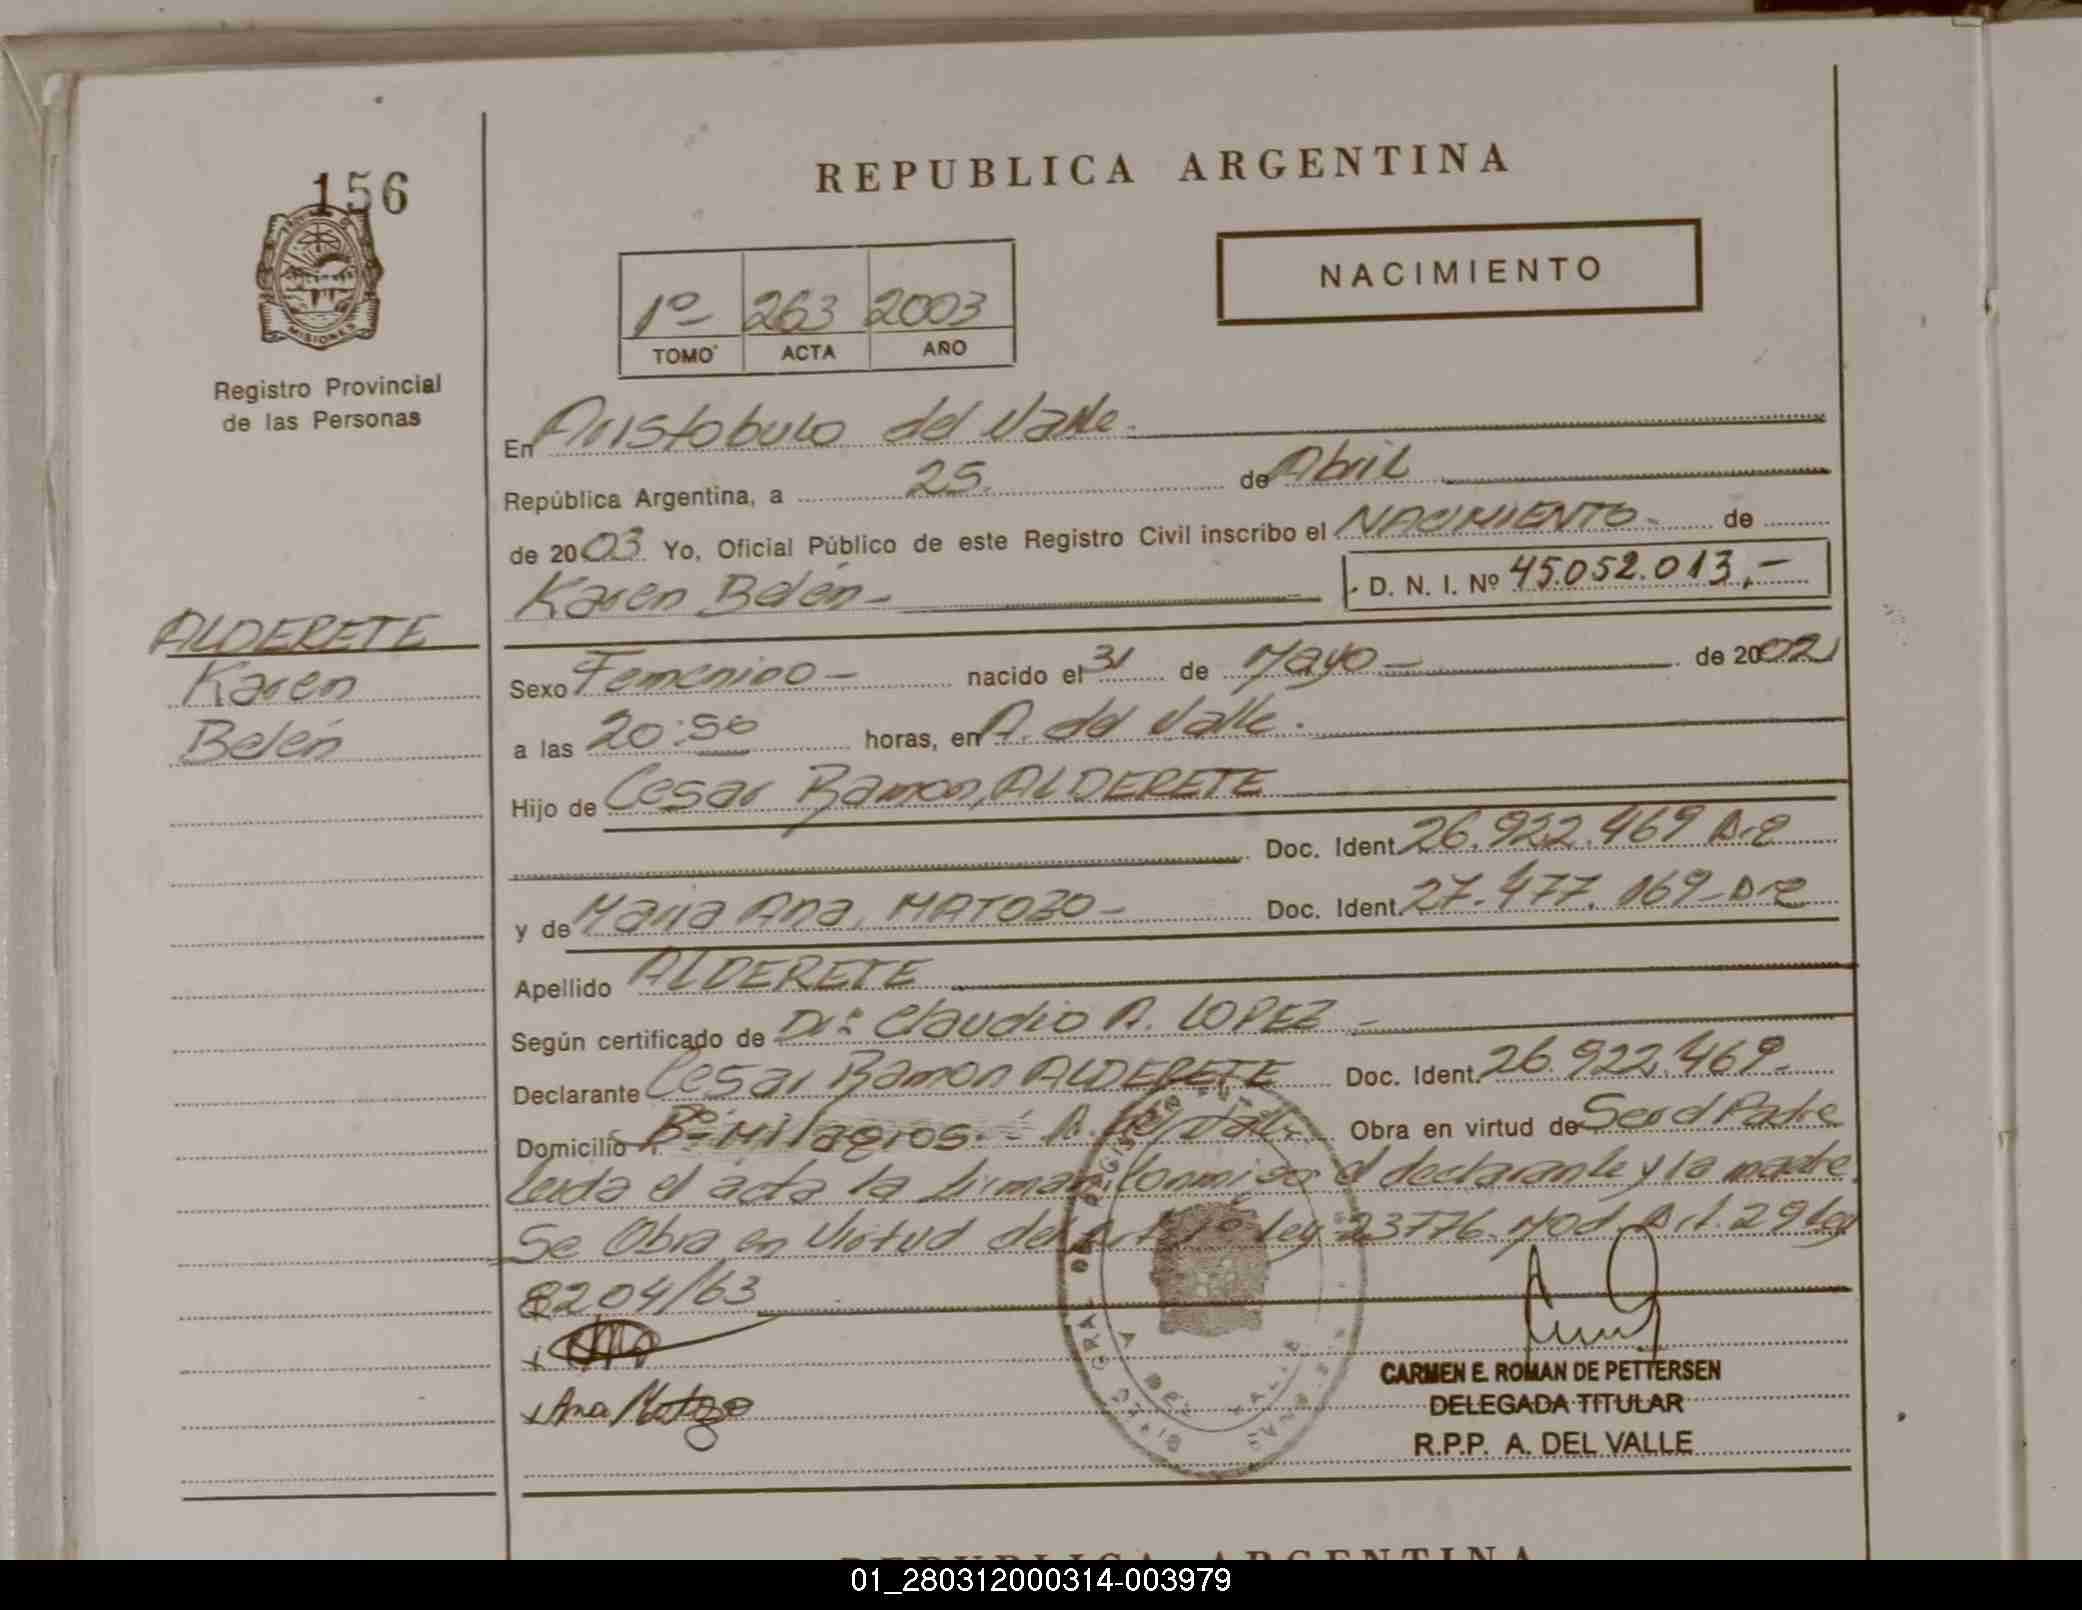 156
MISIONES
Registro Provincial
de las Personas
ALDERETE
Karen
Belén
REPUBLICA ARGENTINA
1º 263 2003
TOMO ACTA AÑO
NACIMIENTO
En Aristobulo del Valle.
República Argentina, a 25. de Abril
de 2003. Yo, Oficial Público de este Registro Civil inscribo el NACIMIENTO- de
Karen Belén- D. N. I. Nº 45.052.013,-
Sexo Femenino- nacido el 31 de Mayo- de 2002
a las 20:50 horas, en A. del Valle.
Hijo de Cesar Ramon, ALDERETE
Doc. Ident. 26.922.469 Arg
y de Maria Ana, MATOZO- Doc. Ident. 27.477.069-Arg
Apellido ALDERETE
Según certificado de Dr: Claudio A. LOPEZ-
Declarante Cesar Ramon ALDERETE Doc. Ident. 26.922.469-
Domicilio Bº Milagros.- A. del Valle Obra en virtud de Ser el Padre
Leida el acta la firman conmigo el declarante y la madre.
Se Obra en Virtud del Ley 23776. Mod. Art. 29 Ley
8204/63
x Ana Matozo
CARMEN E. ROMAN DE PETTERSEN
DELEGADA TITULAR
R.P.P. A. DEL VALLE
REPUBLICA ARGENTINA
01_280312000314-003979